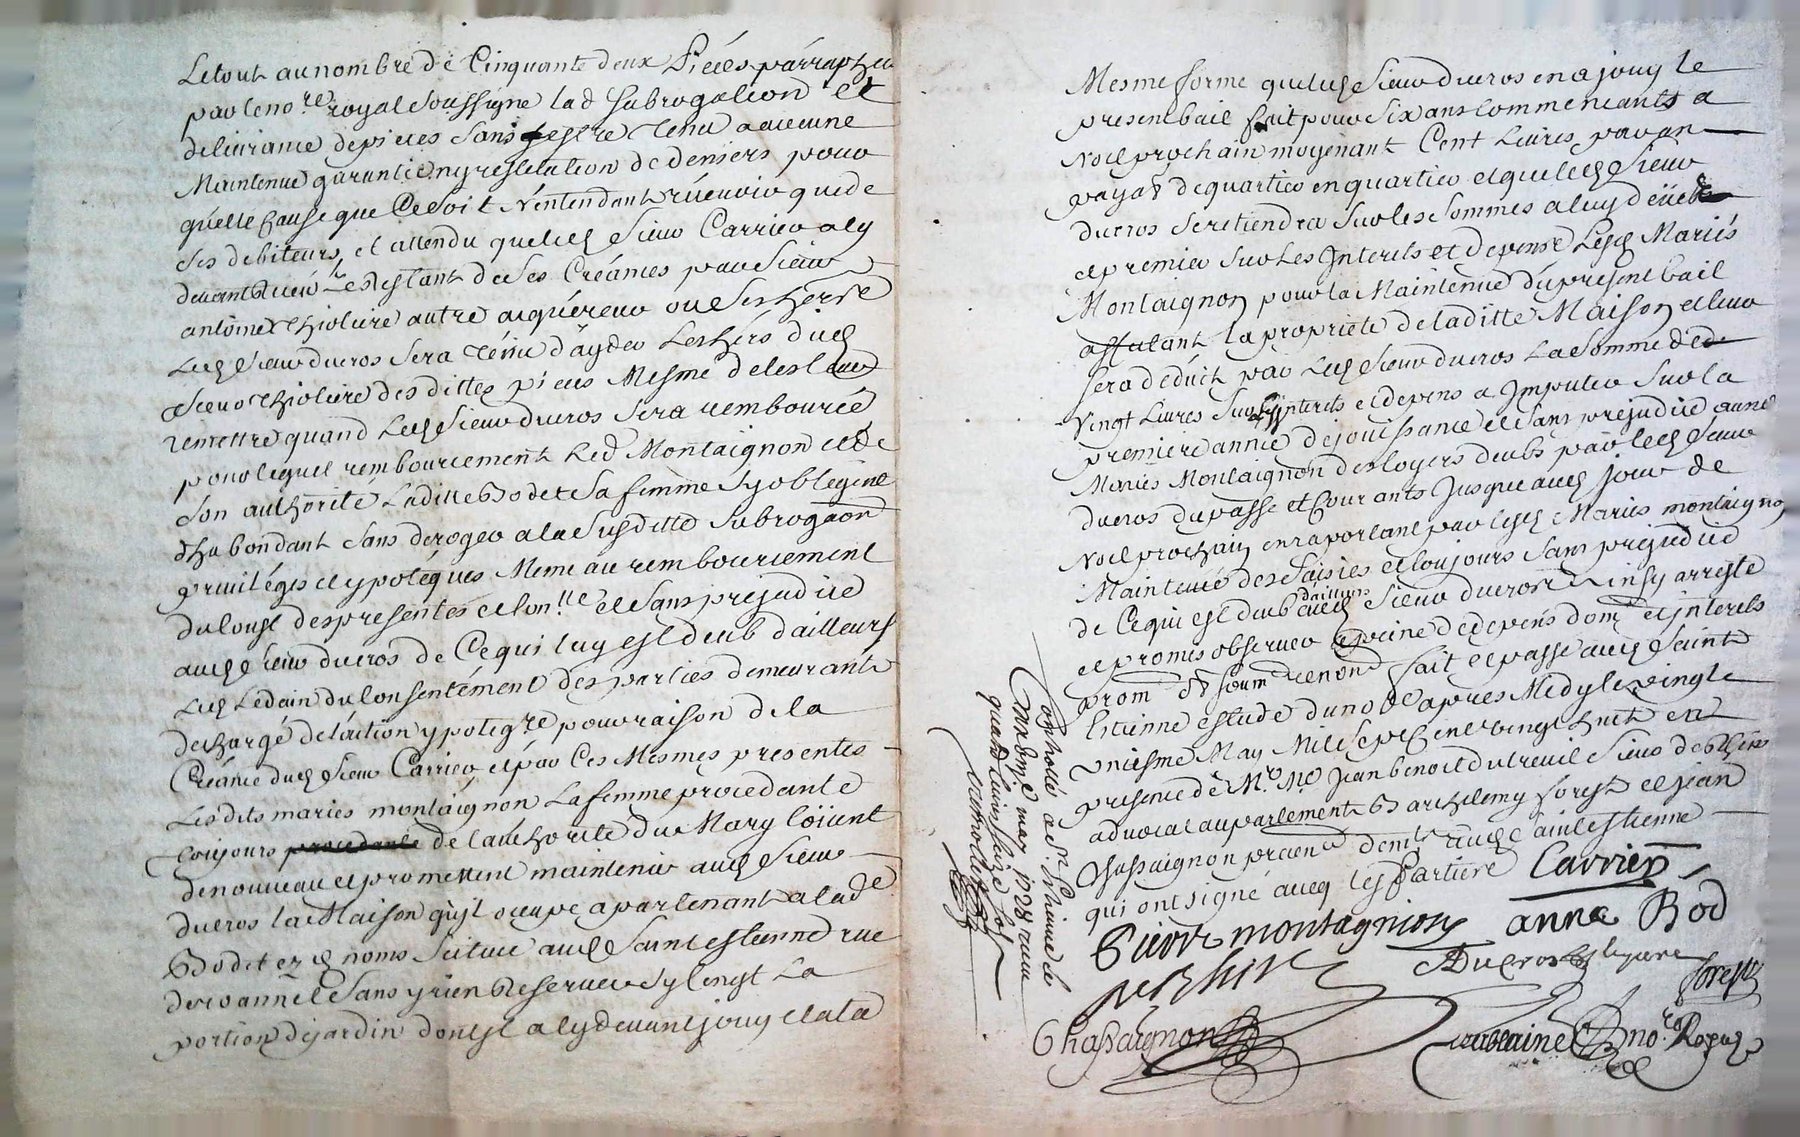 Letout au nombre de Cinquante deux Piéces parraphée
par le no.re royal Soussigne lad Subrogation et
delivrance de pieces sans estre tenu a aucune
Maintenue garantie ny restitution de deniers pour
quelle cause que Ce soit N'entendant recevoir que de
ses debiteurs, et attendu que led Sieur Carrier a ly
devant le restant de ses Créances par Sieur
antoine Thioliere autre acquéreur ou
Led Sieur ducros sera tenu d'ayder Les hers dud
Sieur Thioliere des dittes pieces Mesme de les leur
remettre quand Led Sieur ducros sera rembourcé
pour lequel rembourcement Led Montaignon et de
son authorité Ladille Bodet Sa femme Syoblegent
d'habondant sans deroger a la Susditte Subrogaon
privilèges et ypotéques Meme au rembourcement
du Coust des presentes et con.lle et sans prejudice
aud Sieur ducros de Ce qui luy est deub d'ailleurs
Led du Consentement des parties demeurant
dechargé de l'action ypoteq.re pour raison de la
Créance dud Sieur Carrier et par Ces Mesmes presentes
Lesdits mariés montaignon La femme procedante
toujours de l'authorité du Mary loüent
de nouveau et promettent maintenir aud Sieur
ducros la Maison qu'il occupe apartenant a lad.e
Bodet ez d noms Scitue aud Saint estienne rue
de roannel Sans y rien Reserver Sy Compt La
portion de jardin dont il a ly devant jouy et a la
Mesme forme que led Sieur ducros en a jouy le
present bail fait pour Six ans Commencants a
Noel prochain moyenant Cent Livres par an
payat de quartier en quartier et que led Sieur
ducros se retiendra Sur les Sommes a luy deües
et premier Sur Les Interets et depens Lesd Mariés
Montaignon pour la Maintenüe du present bail
la propriete de laditte Maison et leur
Sera deduit par Led Sieur ducros La Somme de
Vingt Livres Sur interets et depens a Imputer Sur la
premiere année de jouissance et Sans prejudice auxd
Mariés Montaignon des loyers deubs par led Sieur
ducros du passe et Courants Jusque aud jour de
Noel prochain en raportant par lesd Mariés montaignon
Mainlevée des Saisies et toujours Sans prejudice
de Ce qui est deub d'ailleurs aud Sieur ducros Ainsy arresté
et promis observer a peine de depens dom et interets
prom et Soum renond fait et passe aud Saint
Estienne estude du no.re apres Midy le vingt
uniesme May Mil Sept Cent vingt huit en
presence de M.e M.e Jean benoit dutreuil Sieur de Rhins
advocat au parlement Barthelemy forest et jean
Chassaignon pratien dem.t aud Saint estienne
qui ont signé avecq les partiere Carrier
Pierre montagnion anne Bod
Ducros
De Rhins forest
Chassaignon no.re Royal
Controllé a St. Etienne le
may 1728 receu
quarante livres seize sols